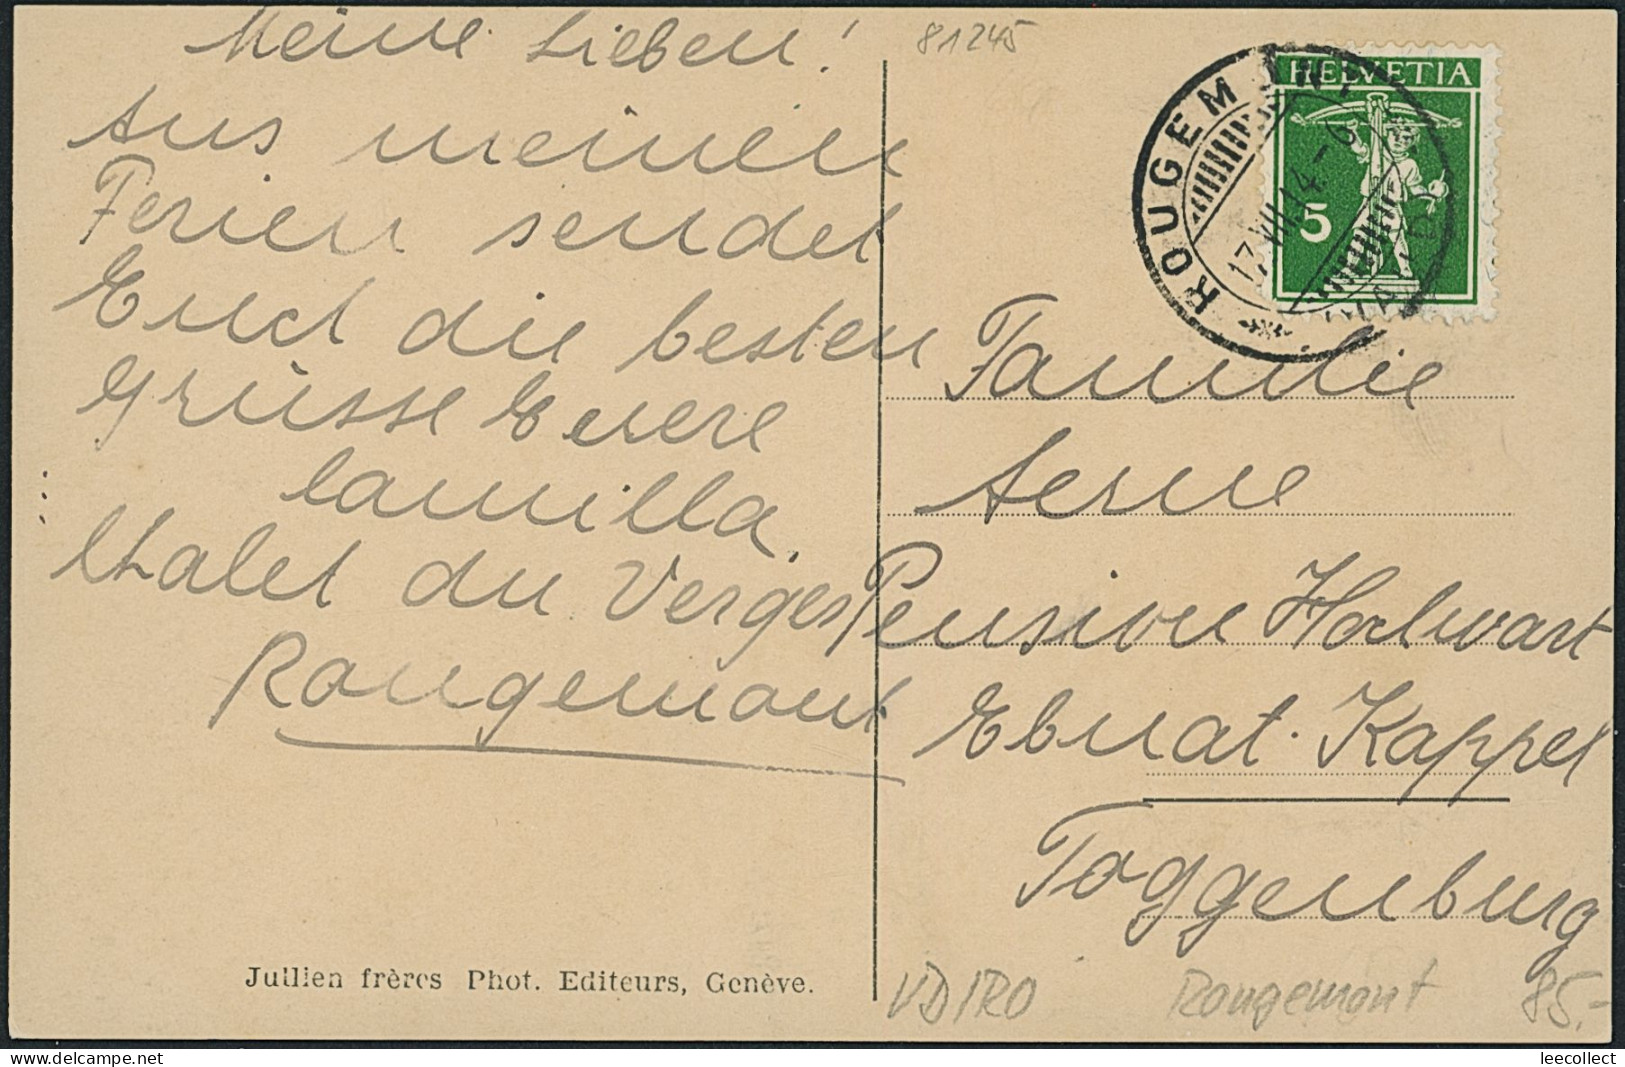 81245
Meine Lieben!
Aus meinen
Ferien sendet
Euch die besten
Grüsse Euere
Camilla.
Chalet du Verges
Rougemont
HELVETIA
5
ROUGEMONT
17.VII.14-6
Familie
Aerne
Pension
Ebnat-Kappel
Toggenburg
Jullien frères Phot. Editeurs, Genève.
VD1RO Rougemont 85.-
leecollect